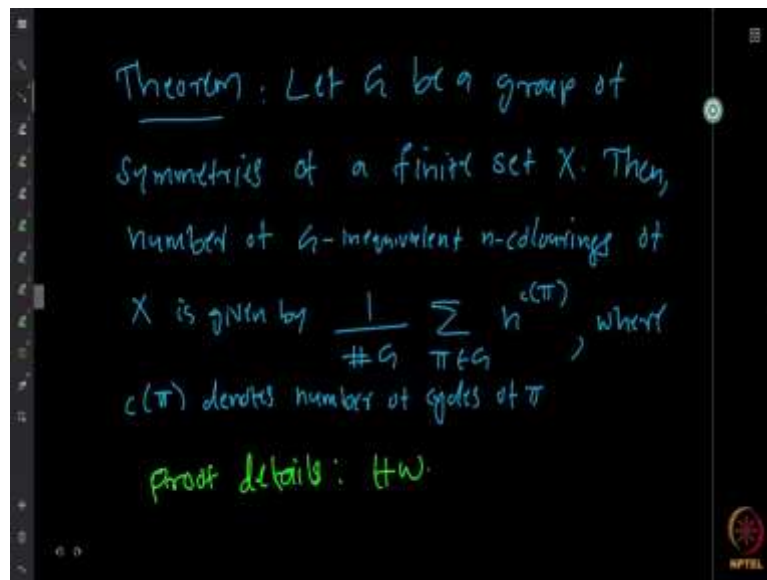 Theorem: Let G be a group of
symmetries of a finite set X. Then,
number of G-inequivalent n-colourings of
X is given by 1/#G Σ_{π∈G} n^{c(π)}, where
c(π) denotes number of cycles of π
Proof details: HW.
NPTEL